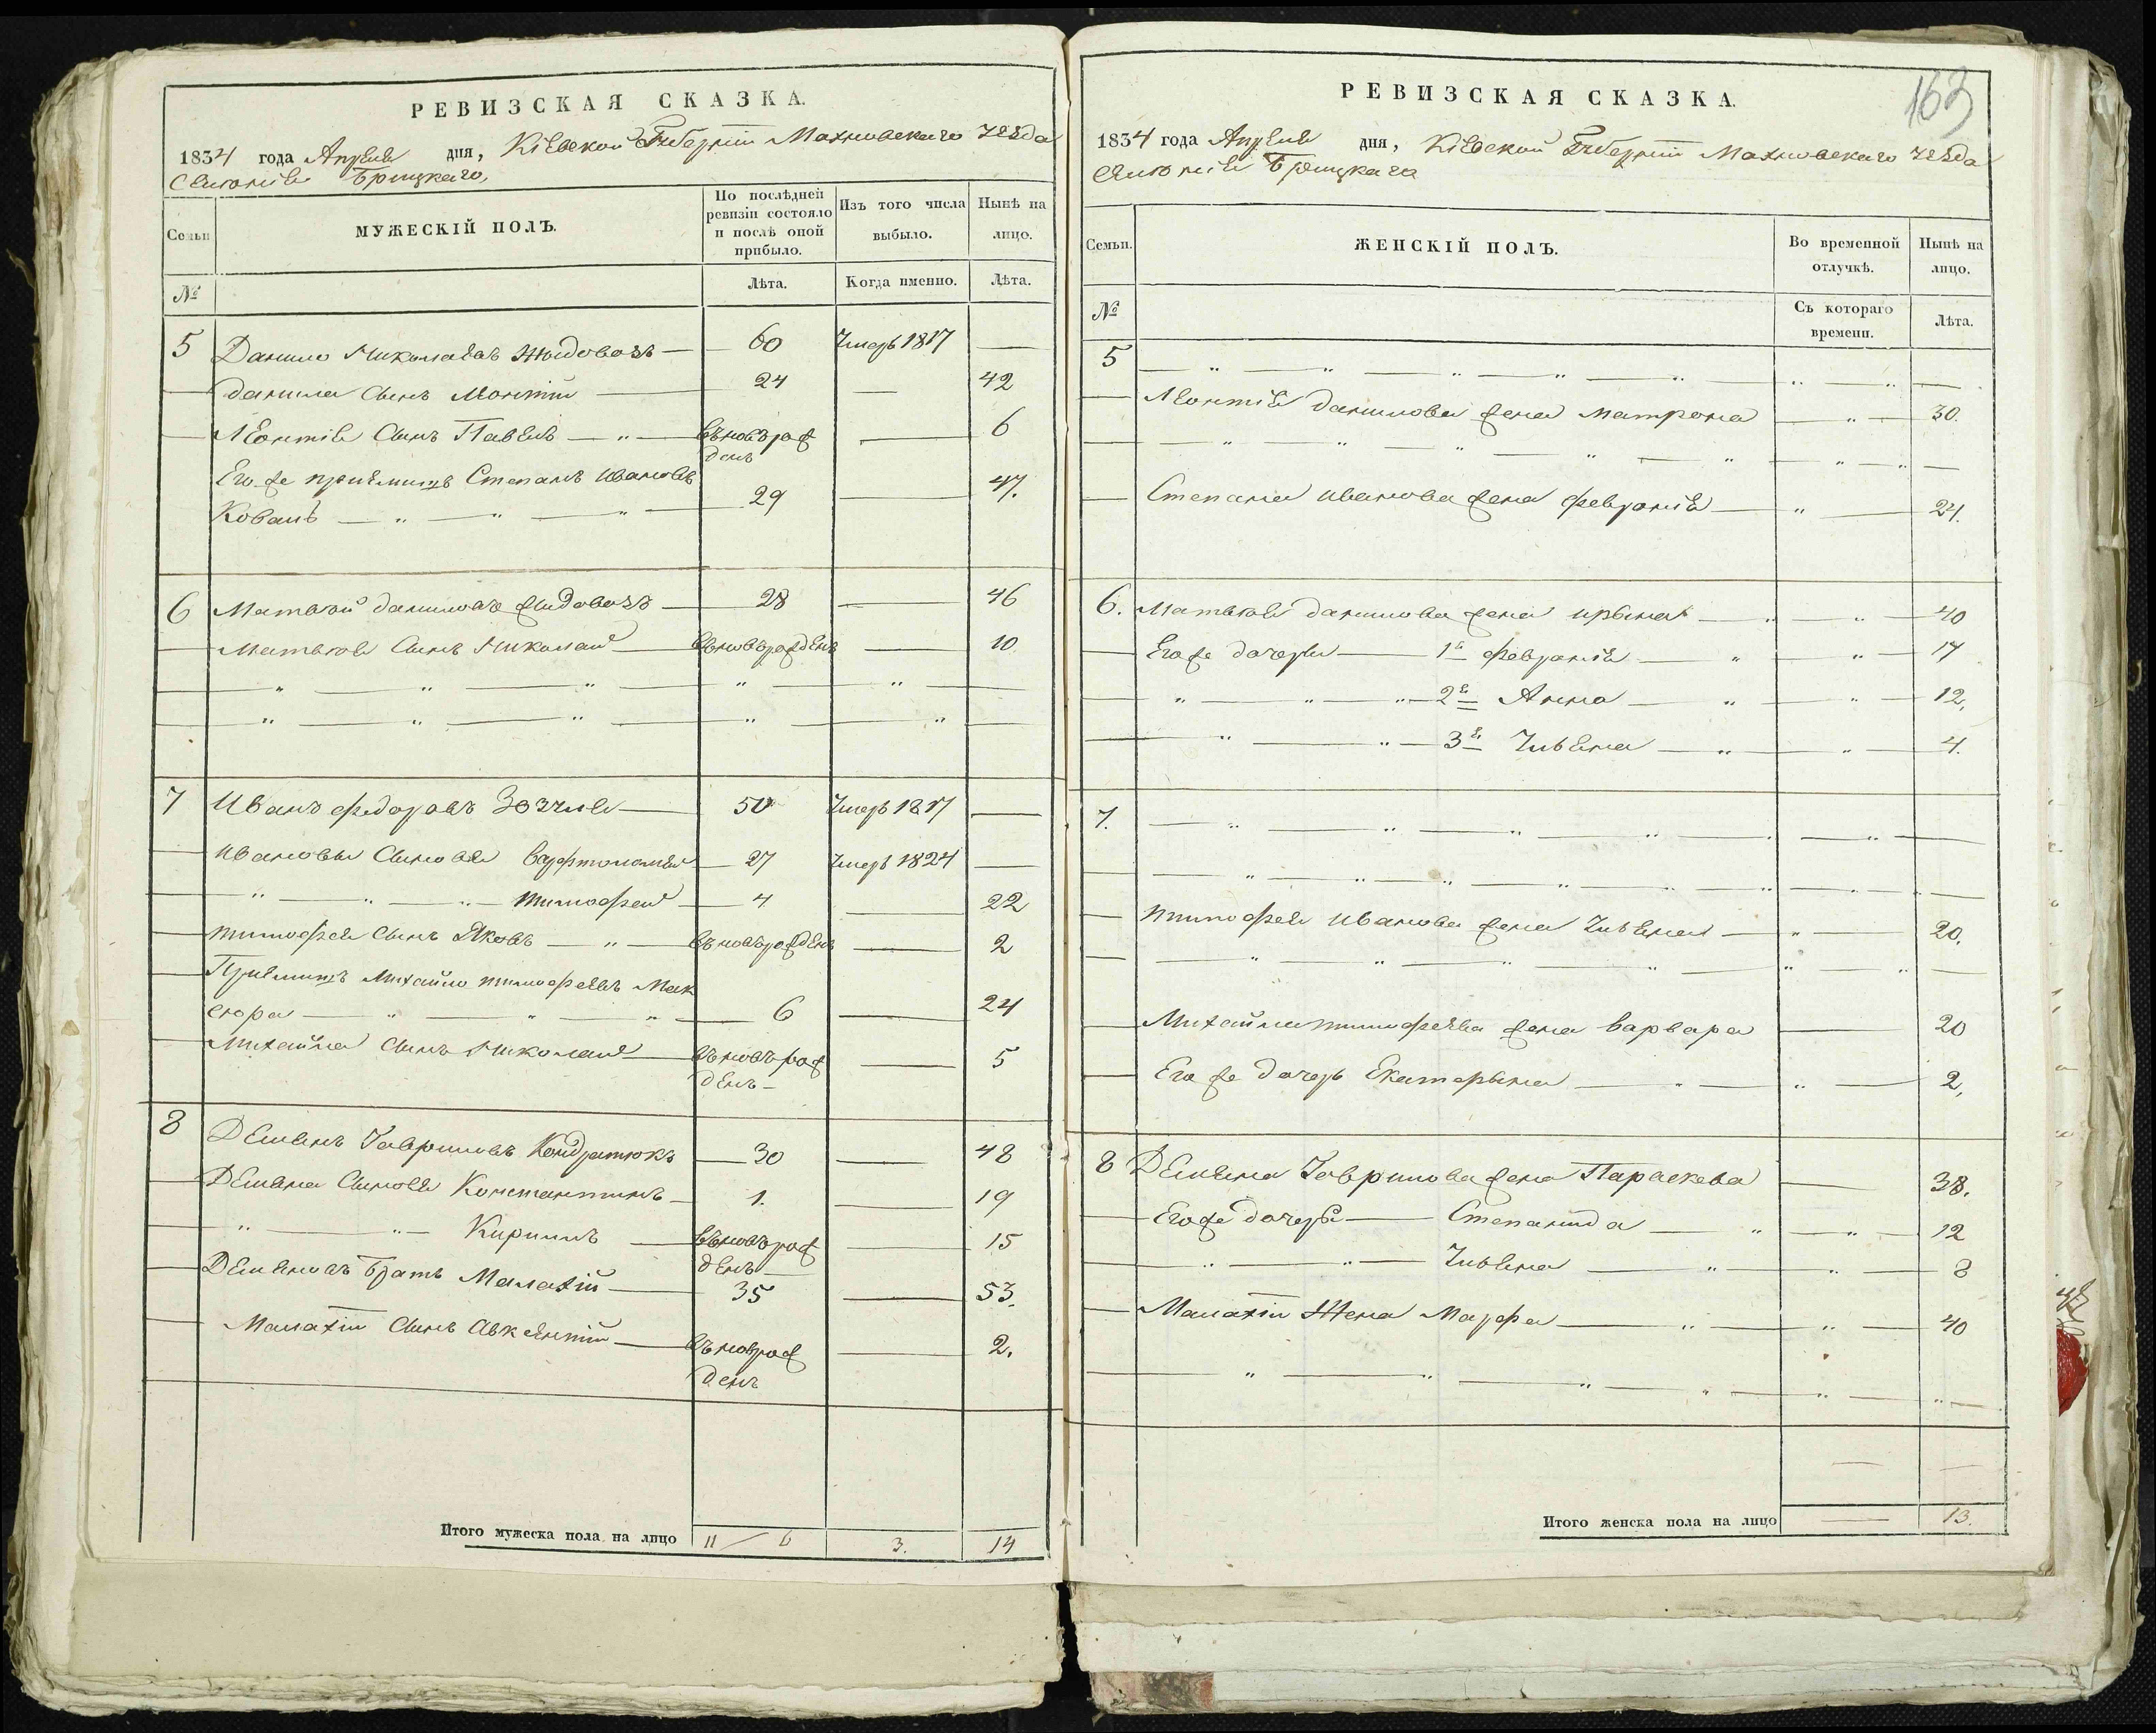 РЕВИЗСКАЯ СКАЗКА.
1834 года Апреля дня, Кіевской Губерніи Махновскаго уезда
Селенія
МУЖЕСКІЙ ПОЛЪ.
Семьи
№
По послѣдней ревизіи состояло и послѣ оной прибыло.
Лѣта.
Изъ того числа выбыло.
Когда именно.
Нынѣ на лицо.
Лѣта.
5 Данило Николаевъ Жидовозъ — 60 Умеръ 1817 —
Данила Сынъ Леонтій — 24 — 42
Леонтія Сынъ Павелъ — " — въновърож — 6
денъ
Его же приемишъ Степанъ Ивановъ
Коваль — " — " — " — 29 — 47.
6 Матвѣй Даниловъ жидовозъ — 28 — 46
Матвѣя Сынъ Николай — въновърожденъ — 10
— " — " — " — " — " —
— " — " — " — " — " —
7 Иванъ Федоровъ — 50 Умеръ 1817 —
Ивановы Сыновья Варфтоломей — 27 Умеръ 1824 —
— " — " — " — тимофей — 4 — 22
тимофея Сынъ Яковъ — " — въновърожденъ — 2
Приемишъ Михайло тимофеевъ Мак
сюра — " — " — " — 6 — 24
Михайла Сынъ Николай — въновърож — 5
денъ —
8 Демянъ Гавриловъ Кондратюкъ — 30 — 48
Демяна Сыновя Константинъ — 1. — 19
" — " — Кирилъ — въновърож — 15
денъ
Демяновъ братъ Малахій — 35 — 53.
Малахіи Сынъ Авксентій — въноврож — 2.
денъ
Итого мужеска пола на лицо 11 / 6 3. 14
163
РЕВИЗСКАЯ СКАЗКА.
1834 года Апреля дня, Кіевской Губерніи Махновскаго уезда
Селенія
Семьи.
№
ЖЕНСКІЙ ПОЛЪ.
Во временной отлучкѣ.
Съ котораго времени.
Нынѣ на лицо.
Лѣта.
5 — " — " — " — " — " — " — " —
Леонтія Данилова жена матрона — " — 30.
— " — " — " — " — " — " — " —
Степана Иванова жена февронія — " — 24.
6. Матвѣя Данилова жена ирына — " — " — 40
Его же дочери — 1я февронія — " — " — 17
" — " — " — 2я Анна — " — " — 12,
" — " — 3я Улвяна — " — " — 4.
7. — " — " — " — " — " — " —
— " — " — " — " — " — " — " — " —
тимофея Иванова жена Улвяна — " — 20.
— " — " — " — " — " — " —
Михайла тимофеева жена варвара — 20
Его же дочерь Екатерына — " — " — 2,
8 Демяна Гаврилова жена Параскева — 38.
Его же дочеры — Степанида — " — " — 12
" — " — Улвяна — " — " — 8
Малахіи Жена Марфа — " — " — 40
— " — " — " — " — " — " —
Итого женска пола на лицо — 13.